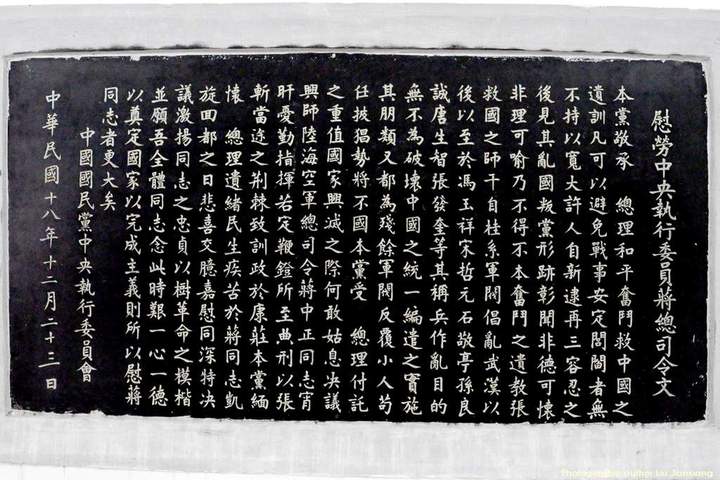 慰勞中央執行委員蔣總司令文
本黨敬承　總理和平奮鬥救中國之
遺訓凡可以避免戰事安定閭閻者無
不持以寬大許人自新逮再三容忍之
後見其亂國叛黨形跡彰聞非德可懷
非理可喻乃不得不本奮鬥之遺教張
救國之師干自桂系軍閥倡亂武漢以
後以至於馮玉祥宋哲元石敬亭孫良
誠唐生智張發奎等其稱兵作亂目的
無不為破壞中國之統一編遣之實施
其朋類又都為殘餘軍閥反覆小人苟
任披猖勢將不國本黨受　總理付託
之重值國家興滅之際何敢姑息決議
興師陸海空軍總司令蔣中正同志宵
旰憂勤指揮若定鞭鐙所至典刑以張
斬當途之荊棘致訓政於康莊本黨緬
懷　總理遺緒民生疾苦於蔣同志凱
旋回都之日悲喜交臆嘉慰同深特決
議激揚同志之忠貞以樹革命之模楷
並願吾全體同志念此時艱一心一德
以奠定國家以完成主義則所以慰蔣
同志者更大矣
中國國民黨中央執行委員會
中華民國十八年十二月二十三日
Photographic author Liu Jianxiang